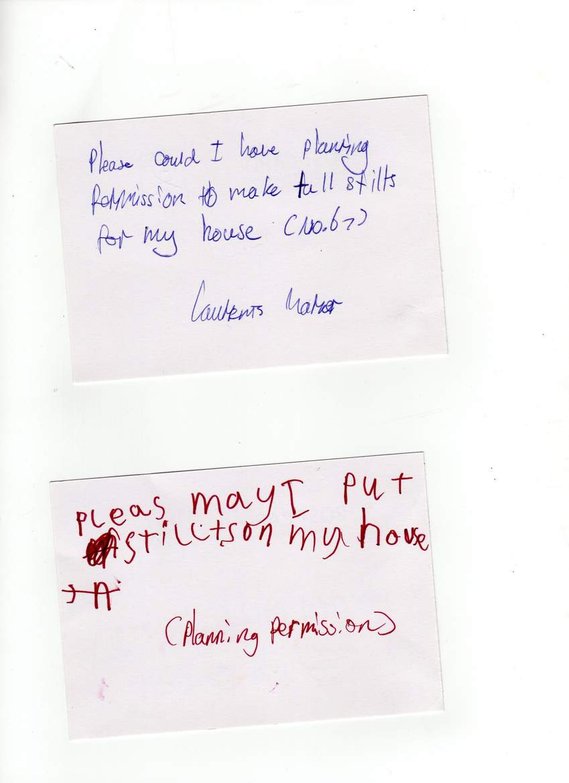 Please could I have planning
Permission to make tall stilts
for my house (No.67)
pleas may I put
stilltson my house
(Planning permission)